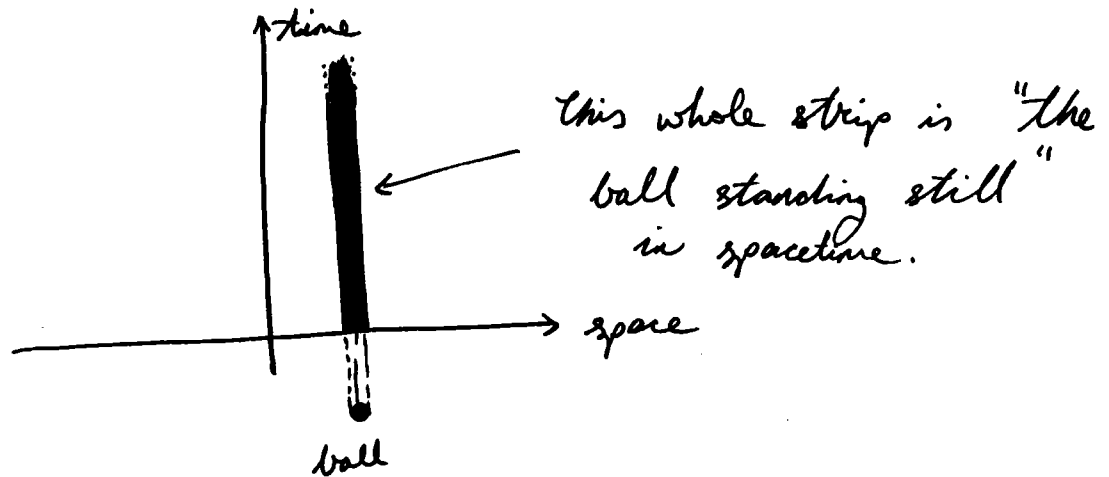 time
this whole strip is "the
ball standing still"
in spacetime.
space
ball